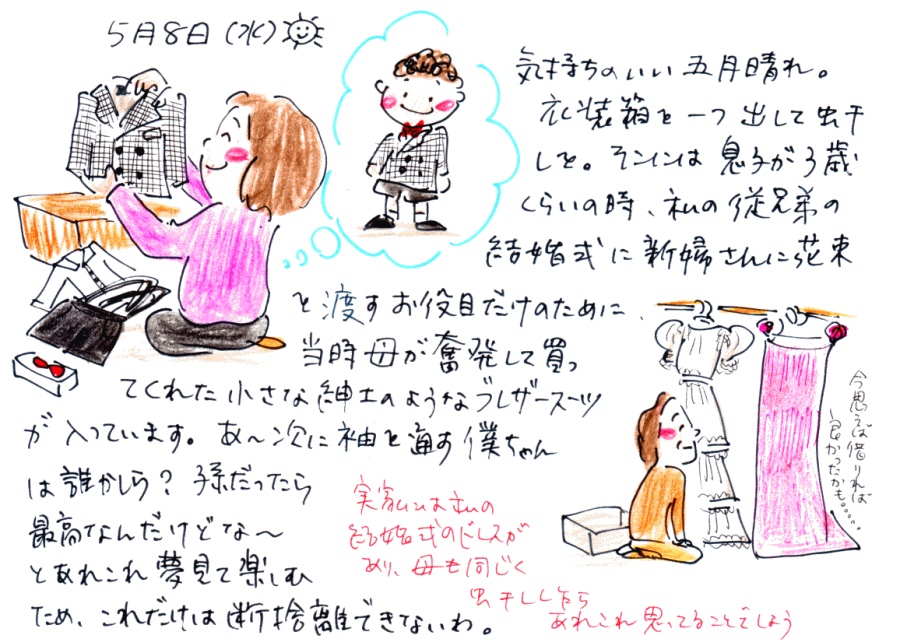 5月8日(水)
気持ちのいい五月晴れ。
衣装箱を一つ出して虫干
しを。そこには息子が3歳
くらいの時、私の従兄弟の
結婚式に新婦さんに花束
を渡すお役目だけのために、
当時母が奮発して買っ
てくれた小さな紳士のようなブレザースーツ
が入っています。あ〜次に袖を通す僕ちゃん
は誰かしら?孫だったら
最高なんだけどな〜
とあれこれ夢見て楽しむ
ため、これだけは断捨離できないわ。
実家には私の
結婚式のドレスが
あり、母も同じく
虫干ししながら
あれこれ思ってることでしょう
今思えば借りれば
良かったかも……